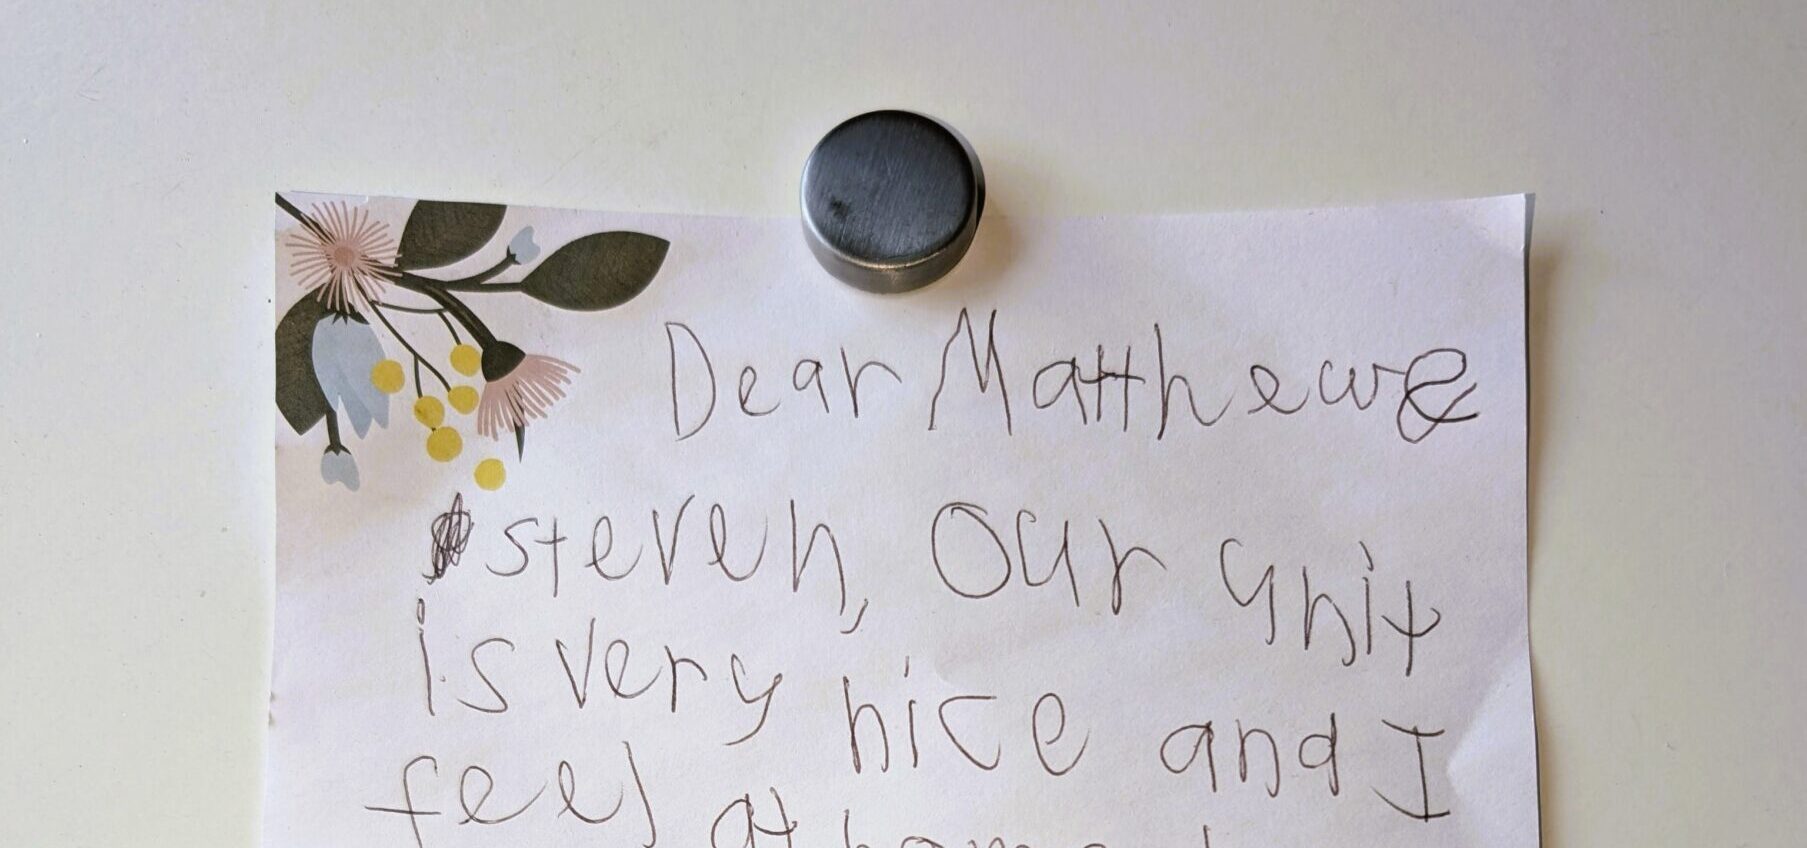 Dear Matthew &
steven, Our unit
is very nice and I
feel at home